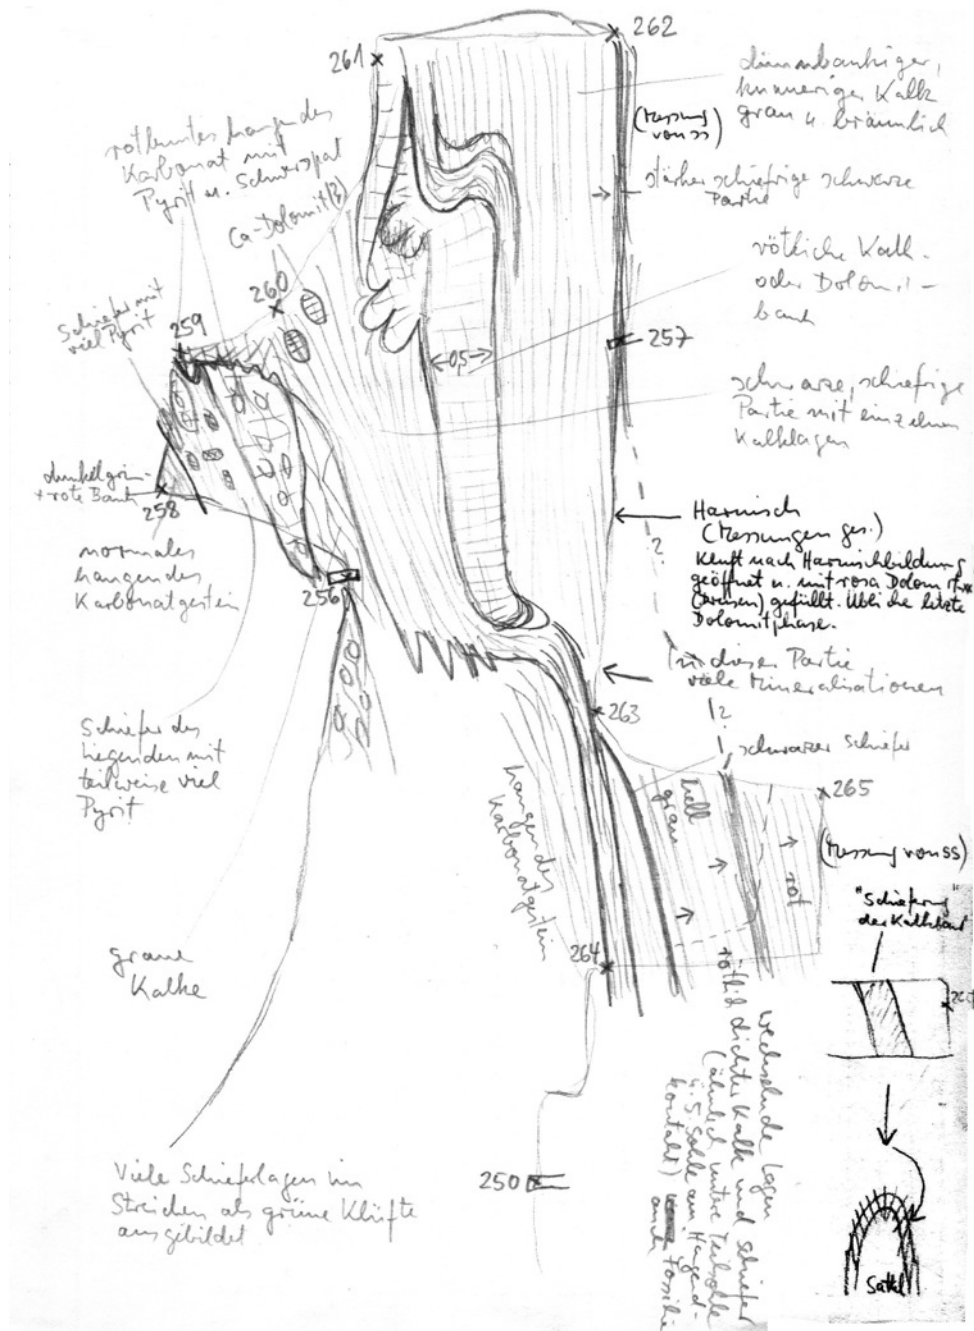 262
261
dünnbankiger,
knaueriger Kalk
grau u. bräunlich
(Messung
von ss)
rotbuntes hangendes
Karbonat mit
Pyrit u. Schwerspat
Ca-Dolomit(?)
stärker schiefrige schwarze
Partie
rötliche Kalk-
oder Dolomit-
bank
260
Schiefer mit
viel Pyrit
259
257
0,5
schwarze, schiefrige
Partie mit einzelnen
Kalklagen
dunkelgrün-
+ rote Bank
258
Harnisch
(Messungen ges.)
Kluft nach Harnischbildung
geöffnet u. mit rosa Dolomit
(Drusen) gefüllt. letzte
Dolomitphase.
normales
hangendes
Karbonatgestein
256
?
In dieser Partie
viele Mineralisationen
263
?
schwarzer Schiefer
Schiefer des
Liegenden mit
teilweise viel
Pyrit
265
hell
grau
rot
(Messung von ss)
hangendes
Karbonatgestein
"Schieferung"
der Kalkbank
graue
Kalke
264
rötlich
wechselnde Lagen
dichter Kalk und Schiefer
(ähnlich untere Teilsohle
u. 5. Sohle am Hangend-
kontakt) auch Fossilien
Viele Schieferlagen im
Streichen als grüne Klüfte
ausgebildet
250
Sattel